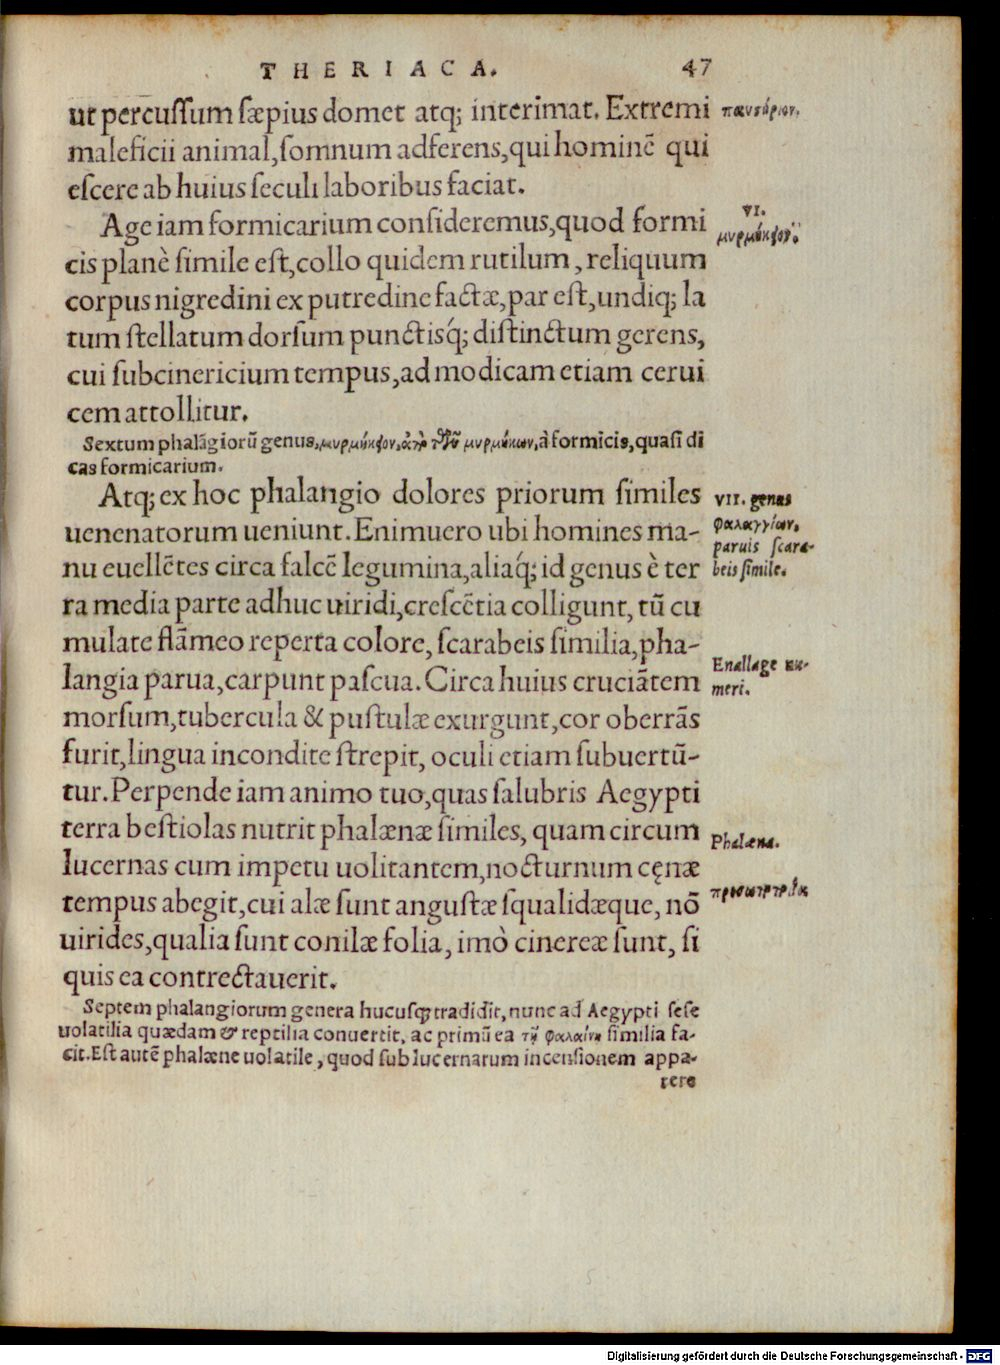 THERIACA. 47
ut percussum sæpius domet atq; interimat. Extremi
maleficii animal, somnum adferens, qui hominē qui
escere ab huius seculi laboribus faciat.
VI.
Age iam formicarium consideremus, quod formi
μυρμήκιον.
cis planè simile est, collo quidem rutilum, reliquum
corpus nigredini ex putredine factæ, par est, undiq; la
tum stellatum dorsum punctisq́; distinctum gerens,
cui subcinericium tempus, ad modicam etiam cerui
cem attollitur.
Sextum phalāgiorū genus, μυρμήκιον, ἀπὸ τῶν μυρμήκων, à formicis, quasi di
cas formicarium.
Atq; ex hoc phalangio dolores priorum similes
VII. genus
φαλαγγίων,
paruis scara-
beis simile.
uenenatorum ueniunt. Enimuero ubi homines ma-
nu euellētes circa falcē legumina, aliaq́; id genus è ter
ra media parte adhuc uiridi, crescētia colligunt, tū cu
mulate flāmeo reperta colore, scarabeis similia, pha-
langia parua, carpunt pascua. Circa huius cruciātem
Enallage nu-
meri.
morsum, tubercula & pustulæ exurgunt, cor oberrās
furit, lingua incondite strepit, oculi etiam subuertū-
tur. Perpende iam animo tuo, quas salubris Aegypti
terra bestiolas nutrit phalænæ similes, quam circum
Phalæna.
lucernas cum impetu uolitantem, nocturnum cęnæ
tempus abegit, cui alæ sunt angustæ squalidæque, nō
uirides, qualia sunt conilæ folia, imò cinereæ sunt, si
quis ea contrectauerit.
Septem phalangiorum genera hucusq; tradidit, nunc ad Aegypti sese
uolatilia quædam & reptilia conuertit, ac primū ea τῇ φαλαίνῃ similia fa-
cit. Est autē phalæne uolatile, quod sub lucernarum incensionem appa-
rere
Digitalisierung gefördert durch die Deutsche Forschungsgemeinschaft - DFG